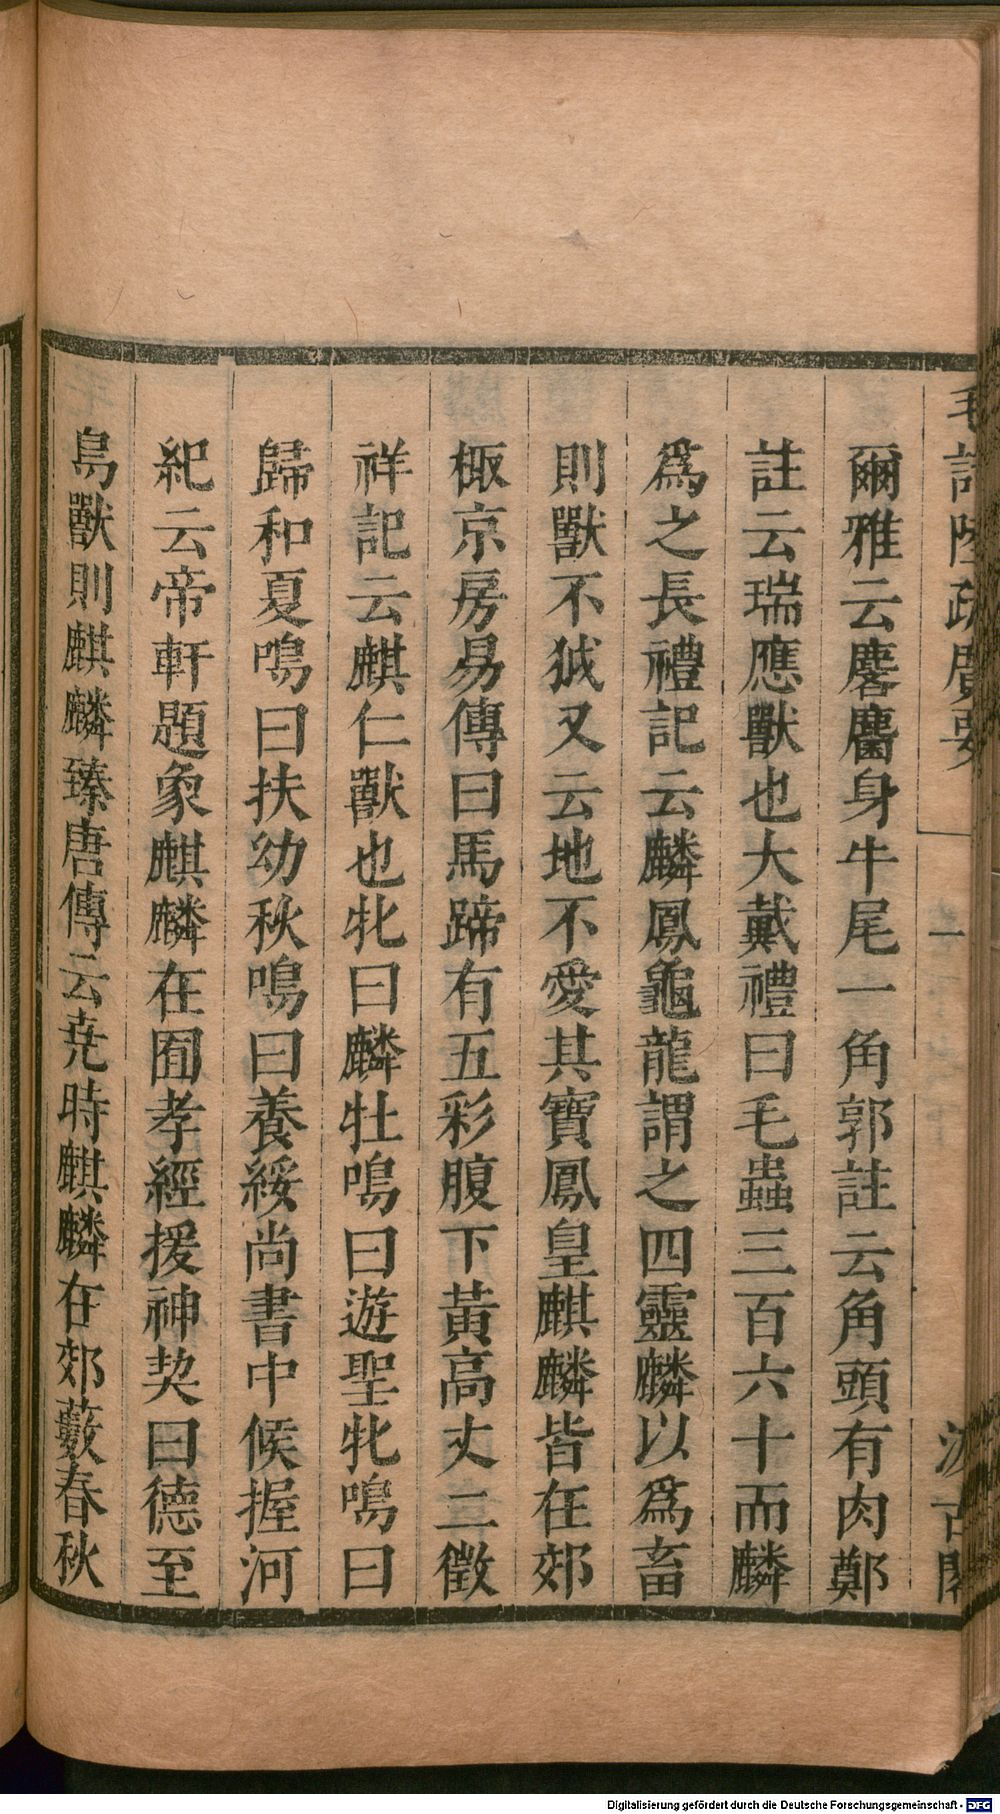 毛詩陸疏廣要
一
汲古閣
爾雅云麐麕身牛尾一角郭註云角頭有肉鄭
註云瑞應獸也大戴禮曰毛蟲三百六十而麟
爲之長禮記云麟鳳龜龍謂之四靈麟以爲畜
則獸不狘又云地不愛其寶鳳皇麒麟皆在郊
棷京房易傳曰馬蹄有五彩腹下黃高丈二徵
祥記云麒仁獸也牝曰麟牡鳴曰遊聖牝鳴曰
歸和夏鳴曰扶幼秋鳴曰養綏尚書中候握河
紀云帝軒題象麒麟在囿孝經援神契曰德至
鳥獸則麒麟臻唐傳云尭時麒麟在郊藪春秋
Digitalisierung gefördert durch die Deutsche Forschungsgemeinschaft - DFG